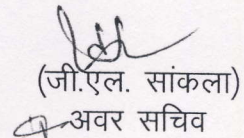 (जी.एल. सांकला)
अवर सचिव